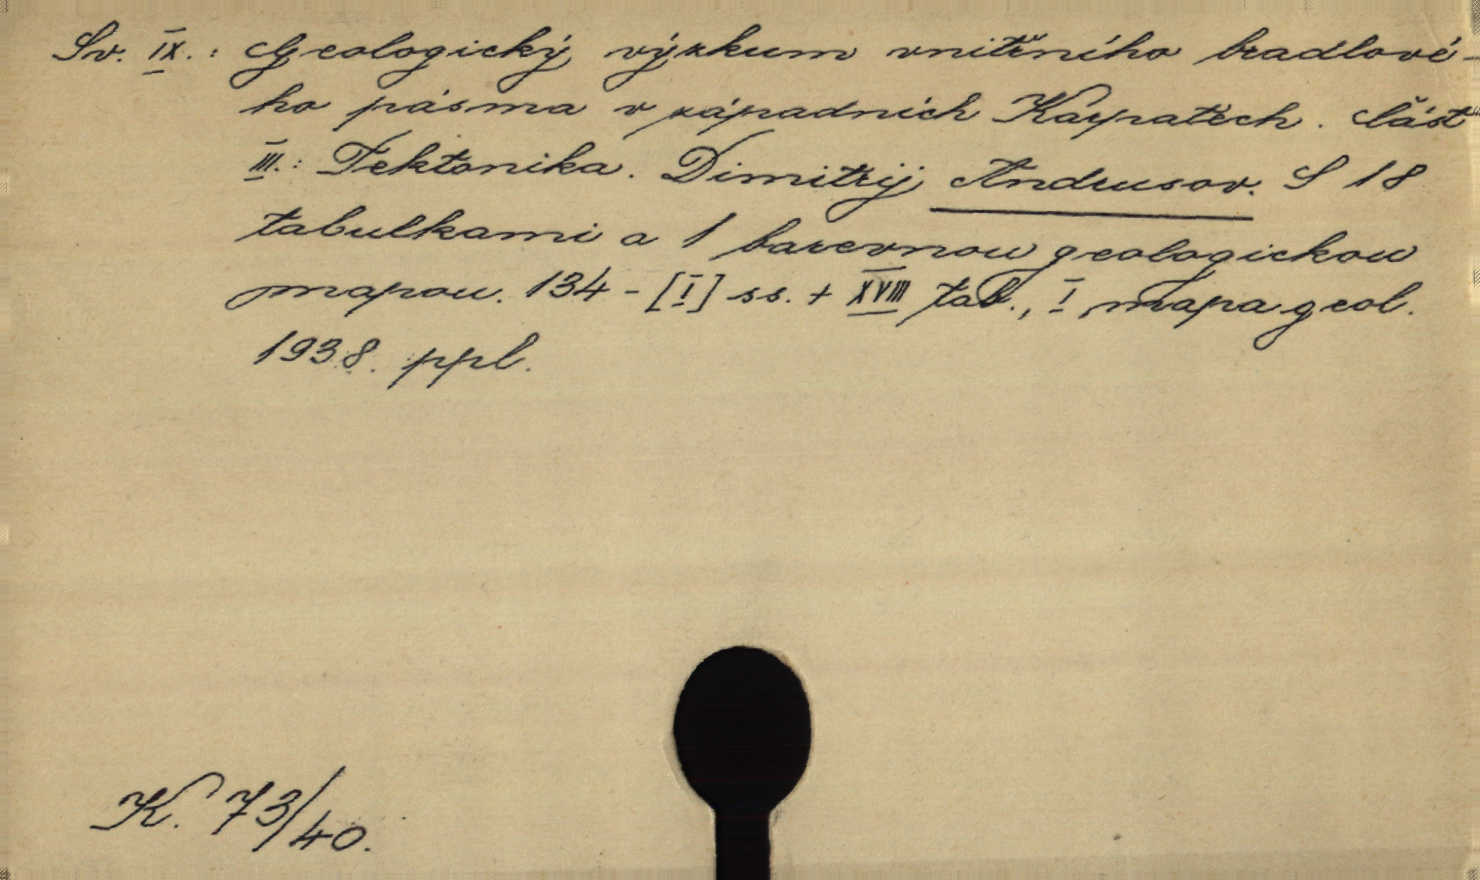 Sv. IX.: Geologický výzkum vnitřního bradlové-
ho pásma v západních Karpatech. Část
III.: Tektonika. Dimitrij Andrusov. S 18
tabulkami a 1 barevnou geologickou
mapou. 134 - [I] ss. + XVIII tab., I mapa geol.
1938. ppl.
K. 73/40.